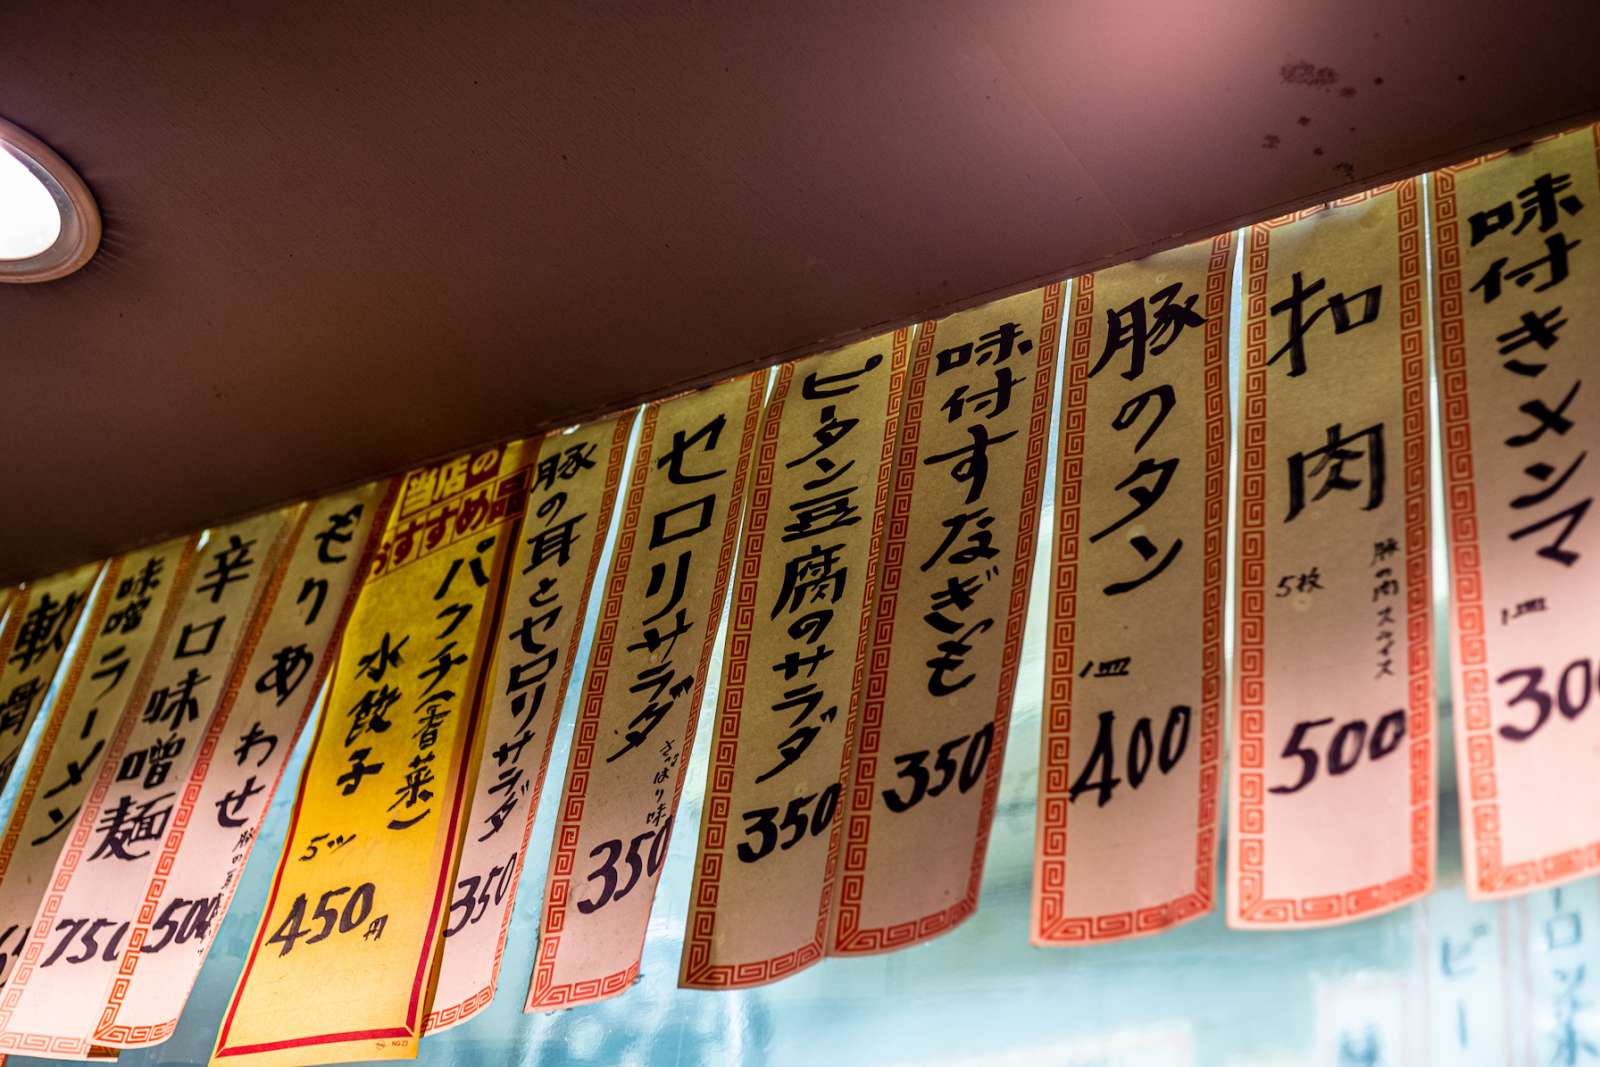 味付きメンマ
一皿
300
扣肉
豚の肉スライス
5枚
500
豚のタン
一皿
400
味付すなぎも
350
ピータン豆腐のサラダ
350
セロリサラダ
さっぱり味
350
豚の耳とセロリサラダ
350
当店の
おすすめ品
パクチー(香菜)
水餃子
5つ
450円
もりあわせ
500
辛口味噌麺
味噌ラーメン
750
軟骨